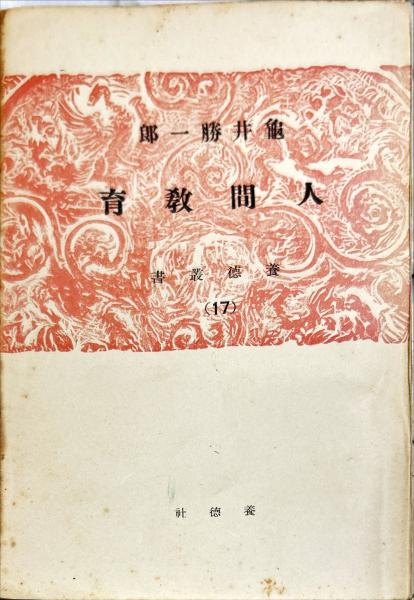 龜井勝一郎
人間敎育
養德叢書
(17)
養德社